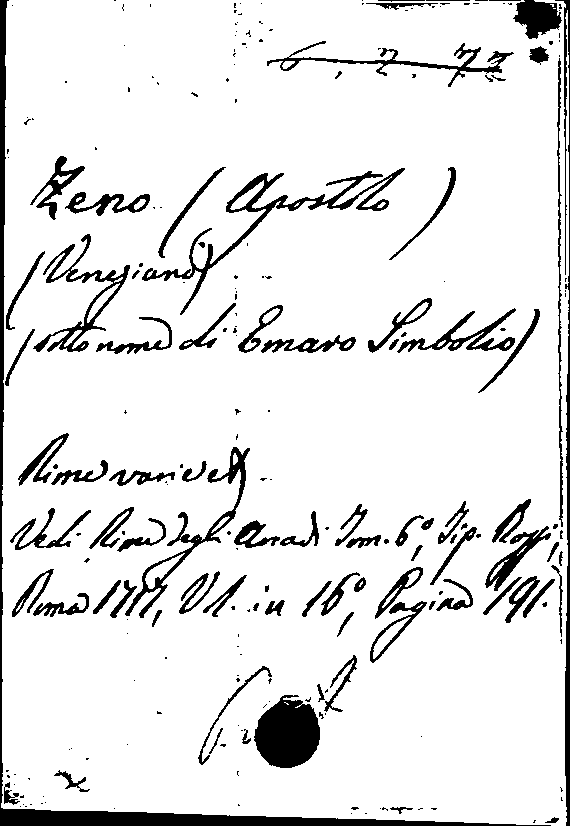 6. 7. 77
Zeno (Apostolo)
(Veneziano)
(sotto nome di Emaro Simbolio)
Rime varie
Vedi Rime degli Arcadi Tom. 6°, Tip. Rossi,
Roma 1717, Vol. in 16°, Pagina 191.